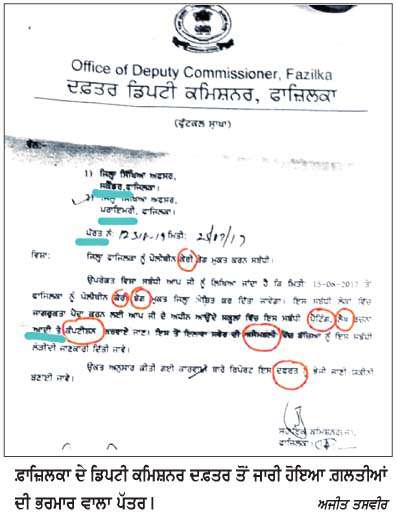 Office of Deputy Commissioner, Fazilka
ਦਫ਼ਤਰ ਡਿਪਟੀ ਕਮਿਸ਼ਨਰ, ਫਾਜ਼ਿਲਕਾ
(ਫੁੱਟਕਲ ਸ਼ਾਖਾ)
1) ਜ਼ਿਲ੍ਹਾ ਸਿੱਖਿਆ ਅਫਸਰ,
ਸਕੈਂਡਰ, ਫਾਜ਼ਿਲਕਾ।
2) ਜ਼ਿਲ੍ਹਾ ਸਿੱਖਿਆ ਅਫਸਰ,
ਪਰਾਇਮਰੀ, ਫਾਜ਼ਿਲਕਾ।
ਪੱਰਤ ਨੰ: ਮਿਤੀ:
ਵਿਸ਼ਾ: ਜ਼ਿਲ੍ਹਾ ਫਾਜ਼ਿਲਕਾ ਨੂੰ ਪੋਲੀਥੀਨ ਕੈਰੀ ਬੈਗ ਮੁਕਤ ਕਰਨ ਸਬੰਧੀ।
ਉਪਰੋਕਤ ਵਿਸ਼ਾ ਸਬੰਧੀ ਆਪ ਜੀ ਨੂੰ ਲਿਖਿਆ ਜਾਂਦਾ ਹੈ ਕਿ ਮਿਤੀ 15-08-2017 ਤੋਂ
ਫਾਜ਼ਿਲਕਾ ਨੂੰ ਪੋਲੀਥੀਨ ਕੈਰੀ ਬੈਗ ਮੁਕਤ ਜ਼ਿਲ੍ਹਾ ਘੋਸ਼ਿਤ ਕਰ ਦਿੱਤਾ ਜਾਵੇਗਾ। ਇਸ ਸਬੰਧੀ ਲੋਕਾਂ ਵਿੱਚ
ਜਾਗਰੂਕਤਾ ਪੈਦਾ ਕਰਨ ਲਈ ਆਪ ਜੀ ਦੇ ਅਧੀਨ ਆਉਂਦੇ ਸਕੂਲਾਂ ਵਿੱਚ ਇਸ ਸਬੰਧੀ ਪੈਂਟਿੰਗ, ਲੇਖ ਰਚਨਾ
ਆਦੀ ਤੇ ਕੰਪਟੀਸ਼ਨ ਕਰਵਾਏ ਜਾਣ। ਇਸ ਤੋਂ ਇਲਾਵਾ ਸਵੇਰ ਦੀ ਅਸੈਂਬਲੀ ਵਿੱਚ ਬੱਚਿਆਂ ਨੂੰ ਇਸ ਸਬੰਧੀ
ਲੋੜੀਂਦੀ ਜਾਣਕਾਰੀ ਦਿੱਤੀ ਜਾਵੇ।
ਉਕਤ ਅਨੁਸਾਰ ਕੀਤੀ ਗਈ ਕਾਰਵਾਈ ਬਾਰੇ ਰਿਪੋਰਟ ਇਸ ਦਫਰਤ ਭੇਜੀ ਜਾਣੀ ਯਕੀਨੀ
ਬਣਾਈ ਜਾਵੇ।
ਸਹਾਇਕ ਕਮਿਸ਼ਨਰ
ਫਾਜ਼ਿਲਕਾ।
ਫ਼ਾਜ਼ਿਲਕਾ ਦੇ ਡਿਪਟੀ ਕਮਿਸ਼ਨਰ ਦਫ਼ਤਰ ਤੋਂ ਜਾਰੀ ਹੋਇਆ ਗ਼ਲਤੀਆਂ
ਦੀ ਭਰਮਾਰ ਵਾਲਾ ਪੱਤਰ। ਅਜੀਤ ਤਸਵੀਰ